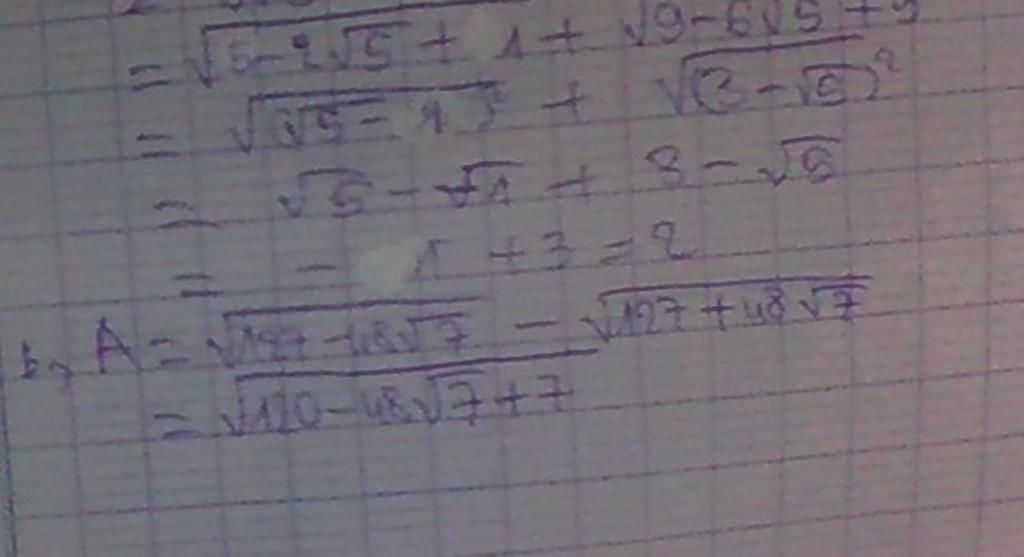 = √5-2√5 + 1 + √9-6√5+5
= √(√5-1)² + √(3-√5)²
= √5 - √1 + 3 - √5
= - 1 + 3 = 2
b, A = √127-48√7 - √127+48√7
= √120-48√7+7